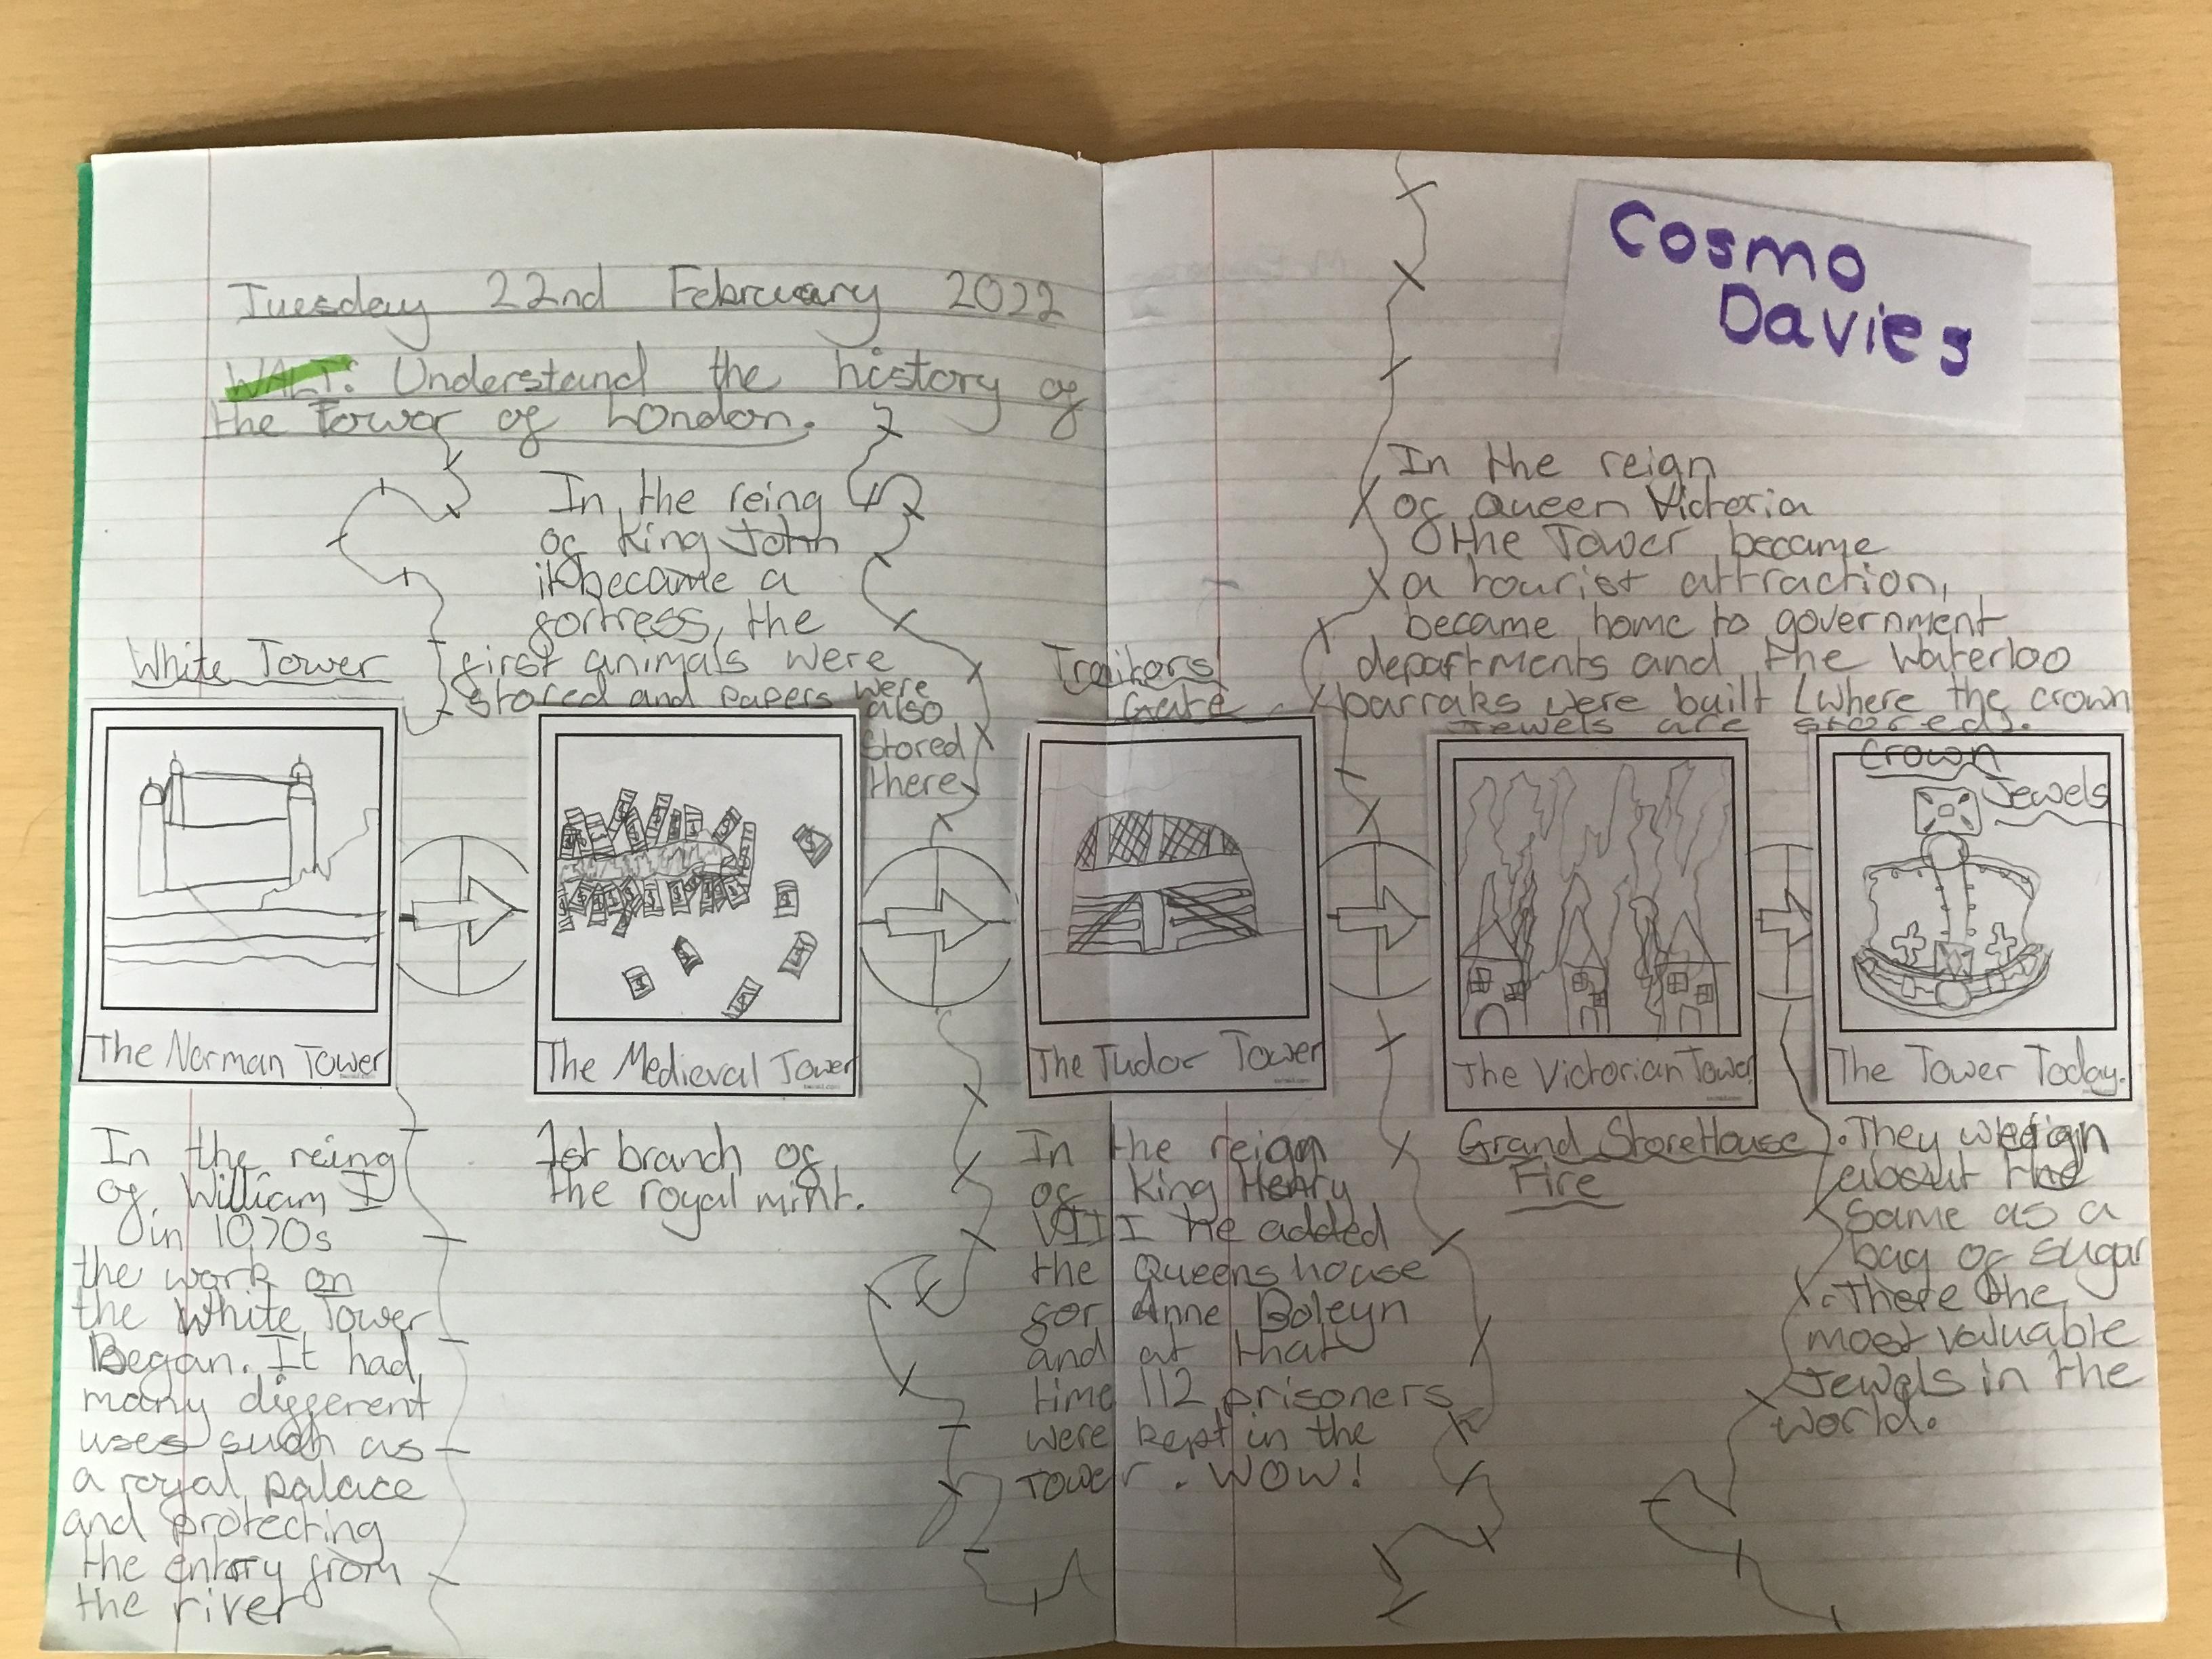 Tuesday 22nd February 2022
WALT: Understand the history of
the Tower of London.
Cosmo
Davies
White Tower
The Norman Tower
In the reing
of William I
in 1070s
the work on
the White Tower
Began. It had
many different
uses such as
a royal palace
and protecting
the entary from
the river
In the reing
of King John
it became a
fortress, the
first animals were
stored and papers were
also
stored
there
The Medieval Tower
1st branch of
the royal mint.
Traitors
Gate
The Tudor Tower
In the reign
of King Henry
VIII he added
the Queens house
for Anne Boleyn
and at that
time 112 prisoners
were kept in the
Tower. WOW!
In the reign
of Queen Victoria
the Tower became
a tourist attraction,
became home to government
departments and the Waterloo
barraks were built (where the crown
jewels are stored).
The Victorian Tower
Grand StoreHouse
Fire
Crown
Jewels
The Tower Today.
. They weign
about the
same as a
bag of sugar
. There the
most valuable
Jewels in the
world.